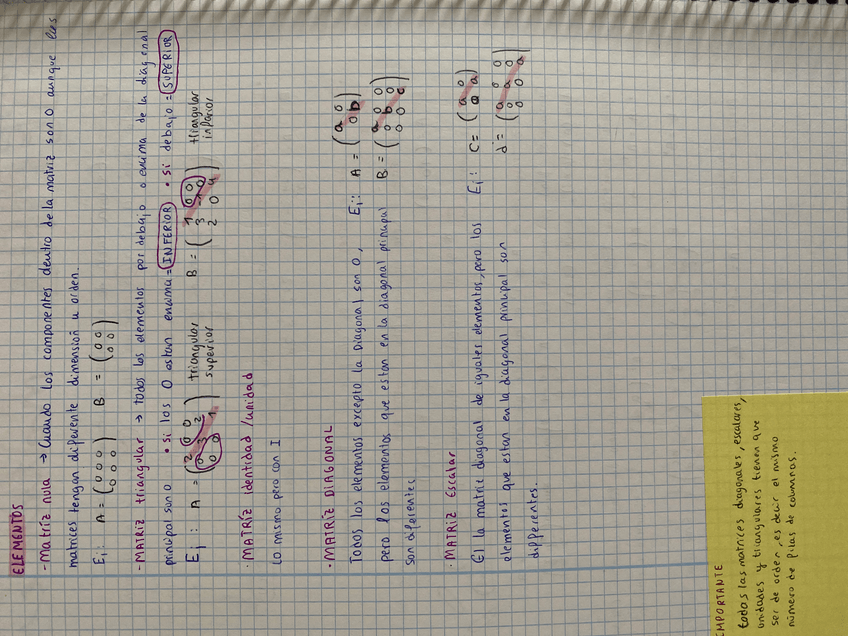 ELEMENTOS
- Matriz nula → Cuando los componentes dentro de la matriz son 0 aunque las
matrices tengan diferente dimensión u orden.
Ej: A = (0 0 0 / 0 0 0) B = (0 0 / 0 0)
- MATRIZ triangular → todos los elementos por debajo o encima de la diagonal
principal son 0 • si los 0 estan encima = INFERIOR • si debajo = SUPERIOR
Ej: A = triangular superior B = triangular inferior
· MATRÍZ identidad/unidad
Lo mismo pero con I
· MATRIZ DIAGONAL
Todos los elementos excepto la Diagonal son 0, Ej: A = (a 0 / 0 b)
pero los elementos que estan en la diagonal principal B = (a 0 0 / 0 b 0 / 0 0 c)
son diferentes
· MATRIZ Escalar
El la matriz diagonal de iguales elementos, pero los Ej: C = (a 0 / 0 a)
elementos que estan en la diagonal principal son d = (a 0 0 / 0 a 0 / 0 0 a)
differentes.
IMPORTANTE
todas las matrices diagonales, escalares,
unidades y triangulares tienen que
ser de orden, es decir el mismo
número de filas de columnas.